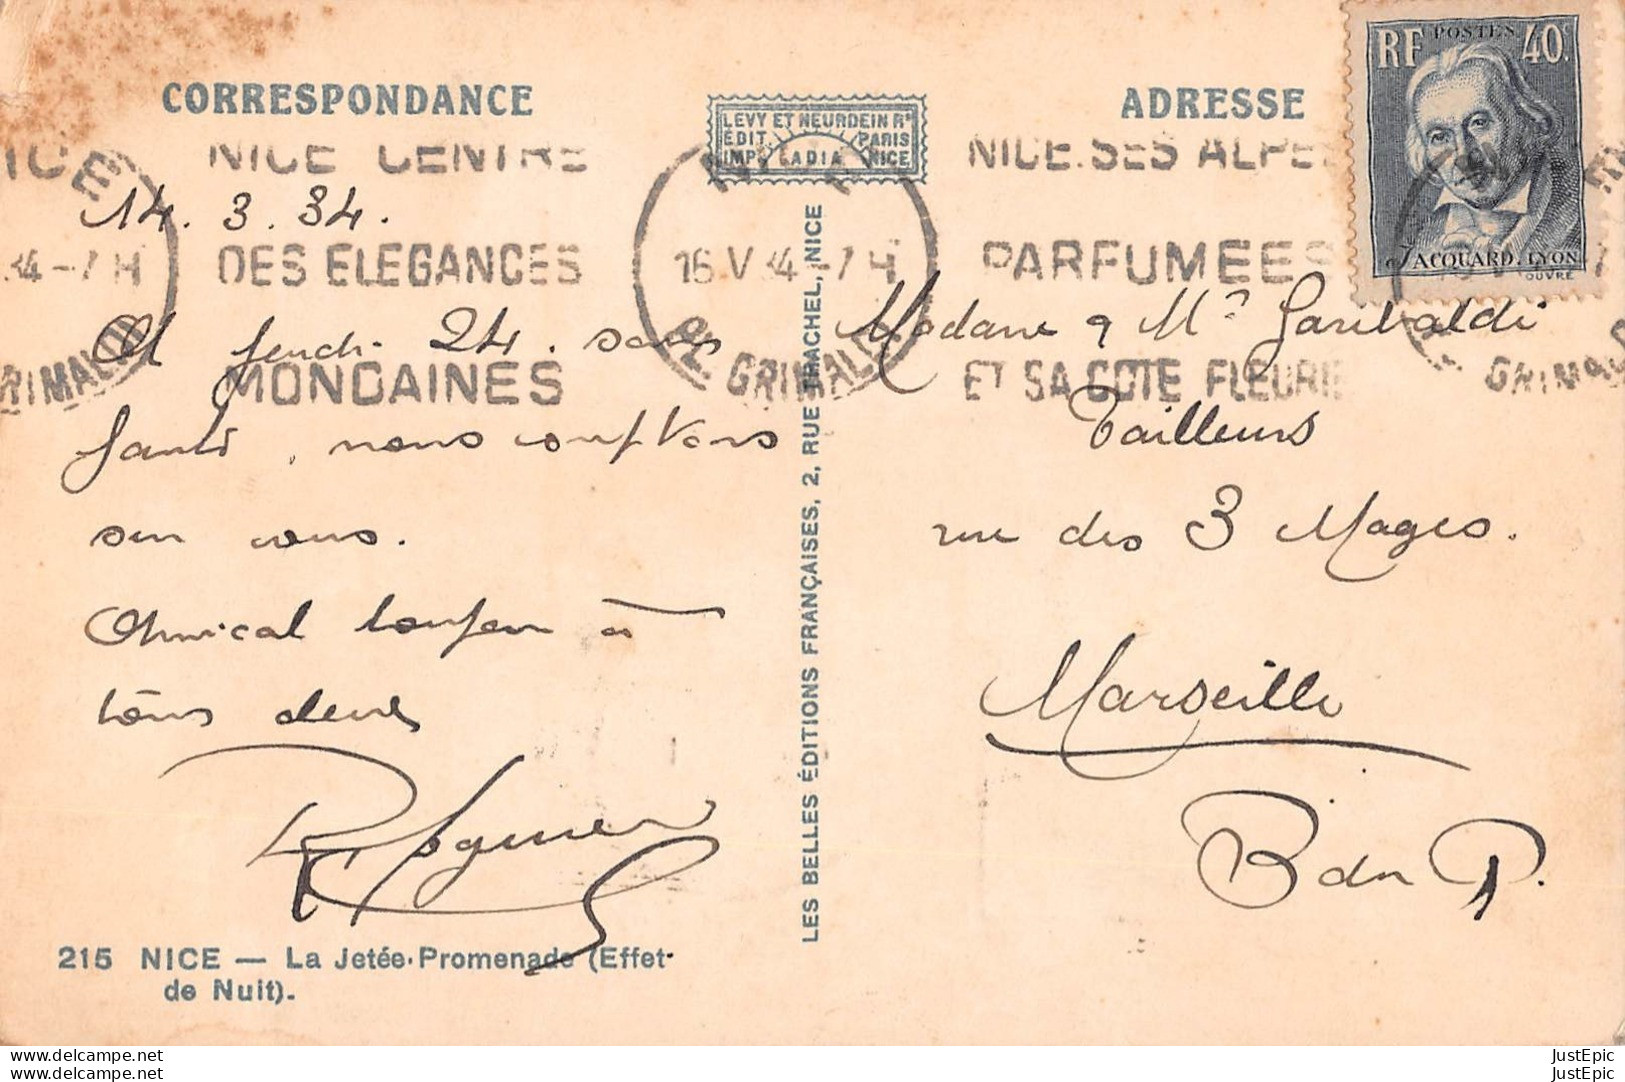 CORRESPONDANCE
LEVY ET NEURDEIN Rs
ÉDIT PARIS
IMP LADIA NICE
ADRESSE
RF POSTES 40c
JACQUARD. LYON
OUVRÉ
NICE CENTRE
DES ELEGANCES
MONDAINES
16 V 34 -7 H
PL. GRIMALDI
NICE.SES ALPES
PARFUMEES
ET SA COTE FLEURIE
14. 3. 34.
jeudi 24. sans
faute, nous comptons
sur vous.
Amical bonjour à
tous deux
Madame & Mr Garibaldi
Tailleurs
rue des 3 Mages.
Marseille
B du R.
LES BELLES ÉDITIONS FRANÇAISES, 2, RUE TRACHEL, NICE
215 NICE — La Jetée-Promenade (Effet
de Nuit).
delcampe.net website
delcampe.net website
JustEpic
JustEpic